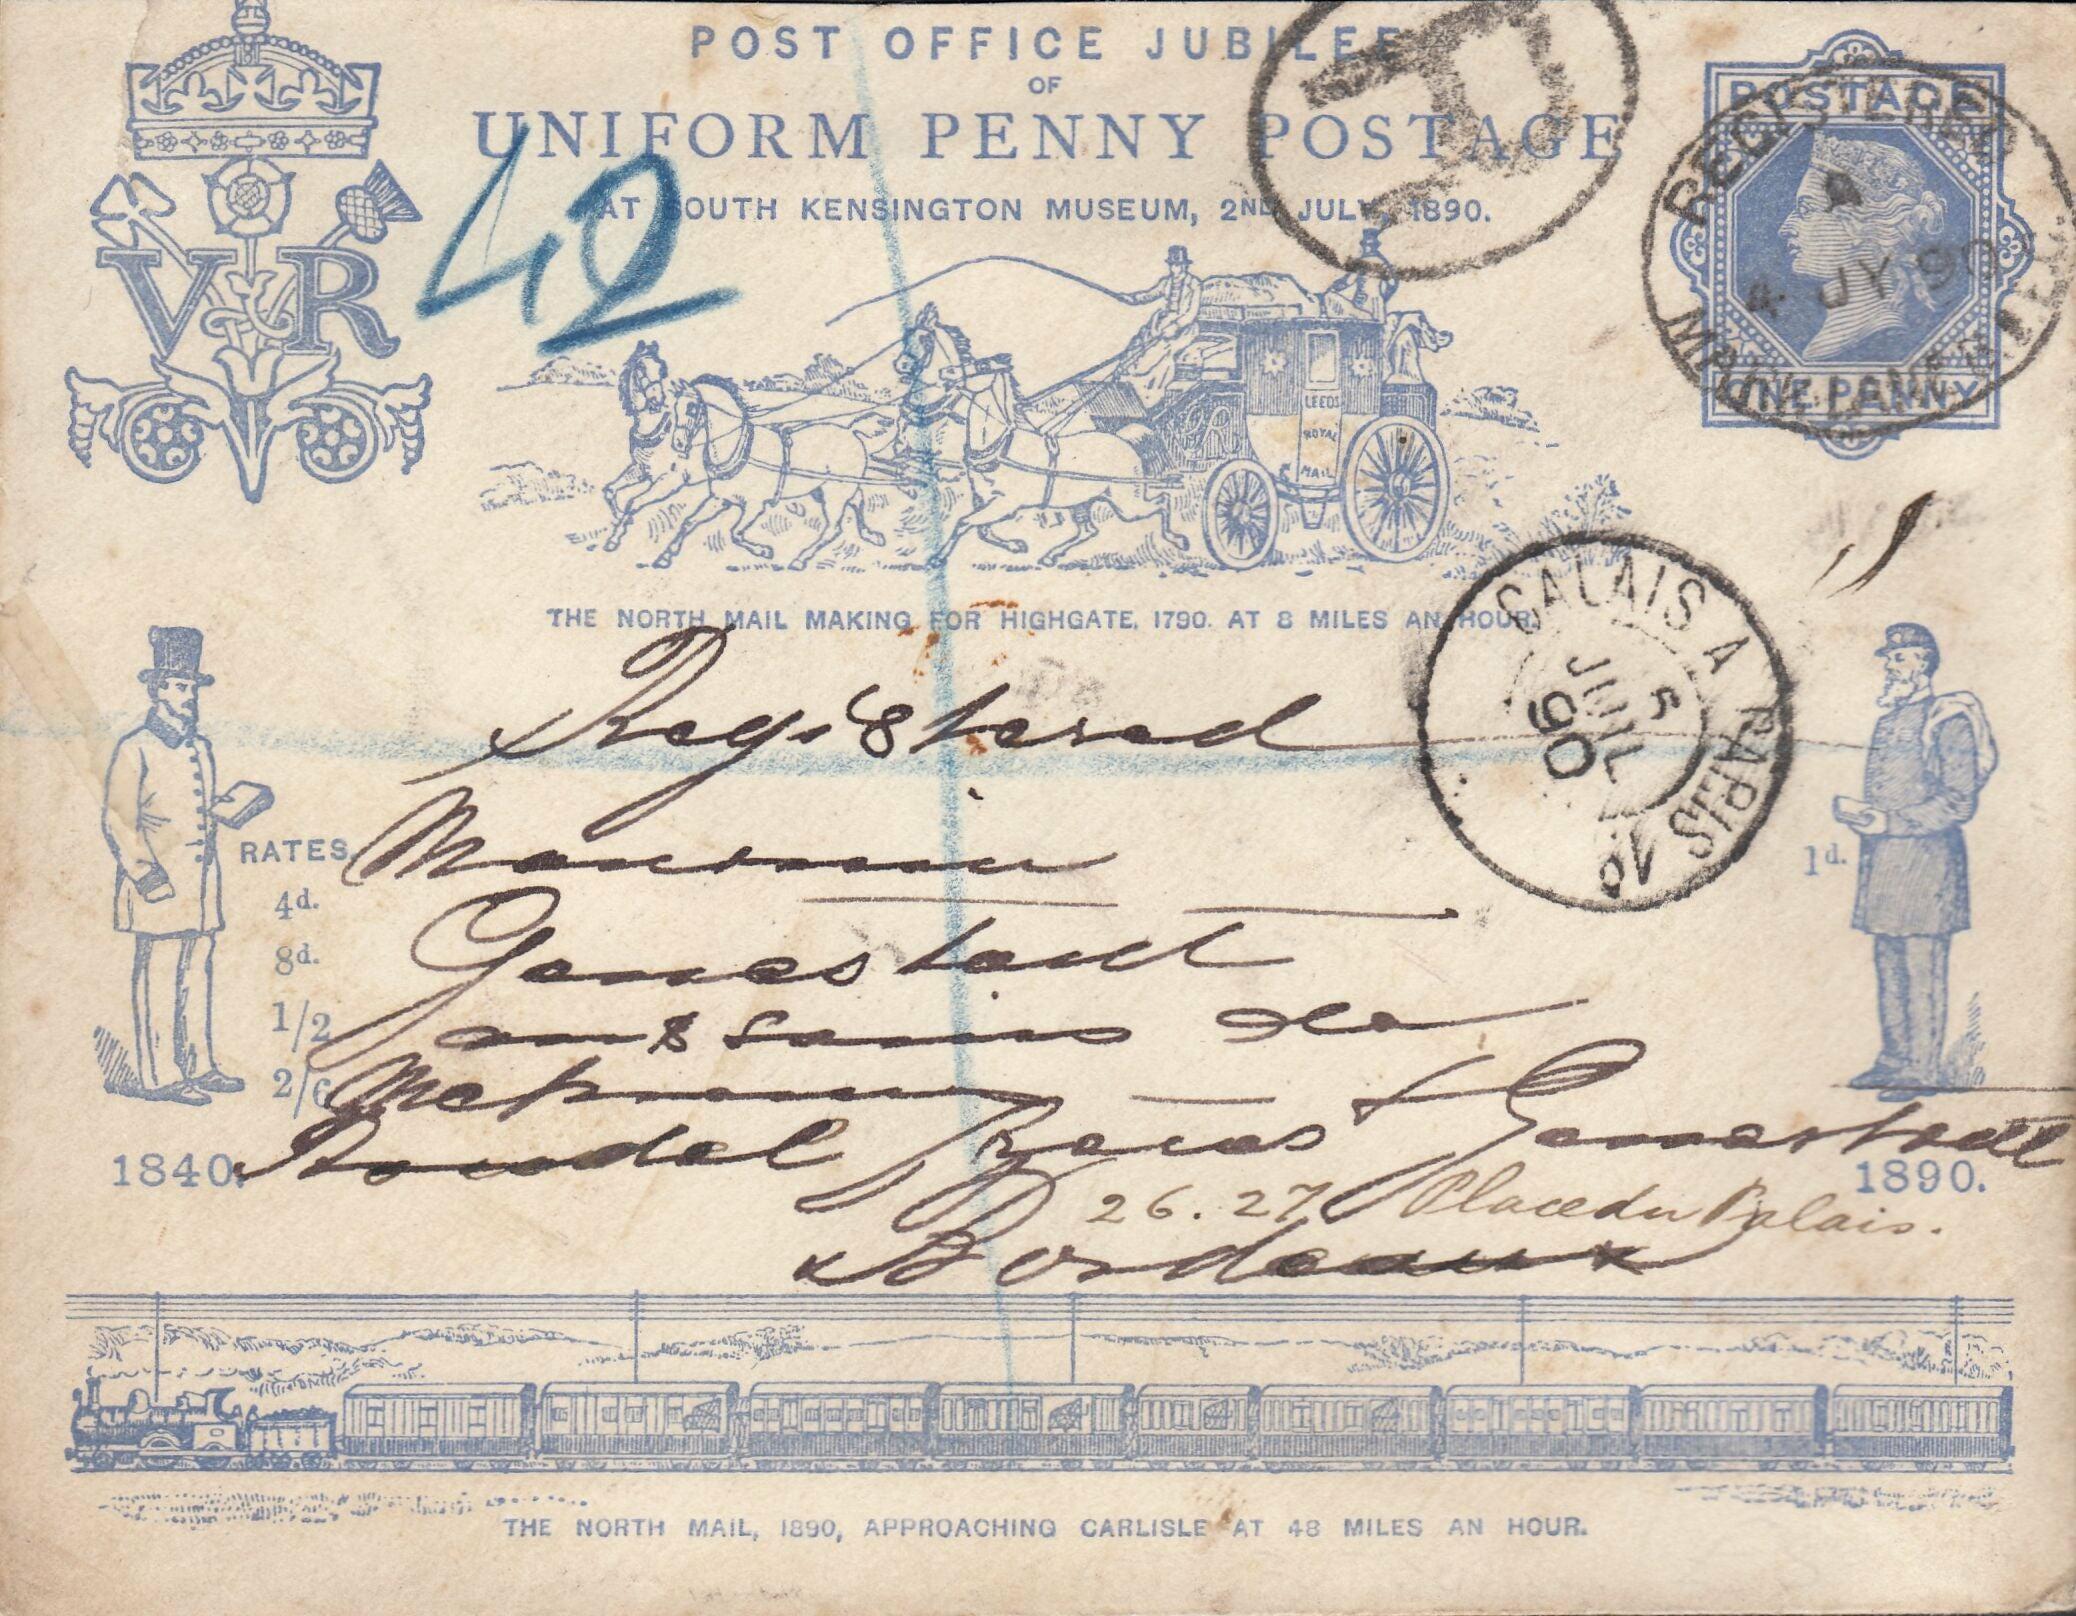 POST OFFICE JUBILEE
OF
UNIFORM PENNY POSTAGE
AT SOUTH KENSINGTON MUSEUM, 2ND JULY, 1890.
R
POSTAGE
ONE PENNY
REGISTERED
A
4 JY 90
MARK LANE
V R
42
LEEDS
ROYAL
MAIL
THE NORTH MAIL MAKING FOR HIGHGATE, 1790. AT 8 MILES AN HOUR.
CALAIS A PARIS
5
JUIL
90
Registered
Monsieur
RATES
4d.
8d.
1/2
2/6
1d.
aux soins de
1840.
1890.
26.27 Place du Palais.
Bordeaux
THE NORTH MAIL, 1890, APPROACHING CARLISLE AT 48 MILES AN HOUR.